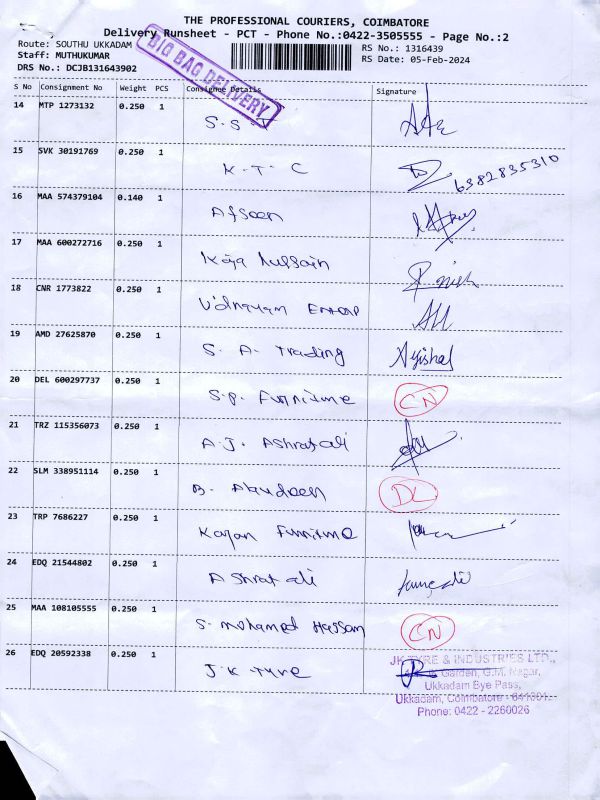 THE PROFESSIONAL COURIERS, COIMBATORE
Delivery Runsheet - PCT - Phone No.:0422-3505555 - Page No.:2
Route: SOUTHU UKKADAM
RS No.: 1316439
Staff: MUTHUKUMAR
RS Date: 05-Feb-2024
DRS No.: DCJB131643902
BIG BAG DELIVERY
S No Consignment No Weight PCS Consignee Details Signature
14 MTP 1273132 0.250 1 S.S.
15 SVK 30191769 0.250 1 K.T.C 6382835310
16 MAA 574379104 0.140 1 Afseen
17 MAA 600272716 0.250 1 Kaja Hussain
18 CNR 1773822 0.250 1
19 AMD 27625870 0.250 1 S. A. Trading
20 DEL 600297737 0.250 1 S.P. Furniture CN
21 TRZ 115356073 0.250 1 A.J. Ashrafali
22 SLM 338951114 0.250 1 B. Alaudeen DL
23 TRP 7686227 0.250 1 Furniture
24 EDQ 21544802 0.250 1 Ashrafali
25 MAA 108105555 0.250 1 S. Mohamed Hassam CN
26 EDQ 20592338 0.250 1 J.K Tyre
JK TYRE & INDUSTRIES LTD.,
Garden, G.M. Nagar,
Ukkadam Bye Pass,
Ukkadam, Coimbatore - 641001.
Phone: 0422 - 2260026